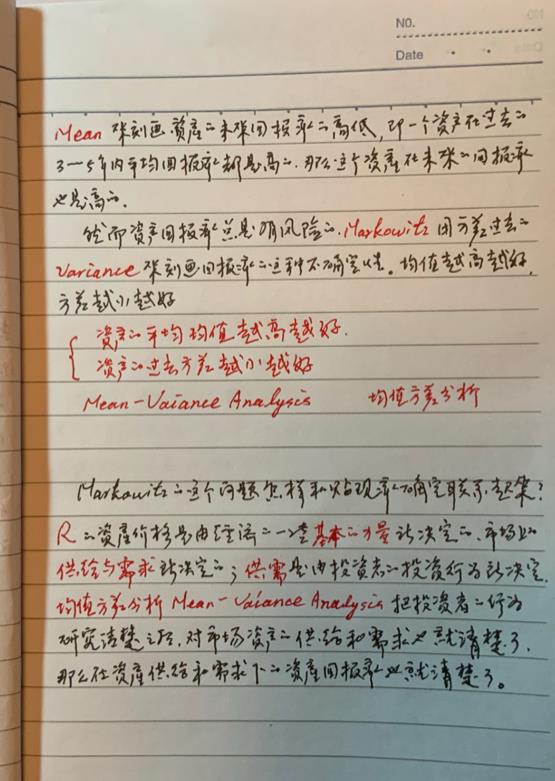 NO.
Date
Mean 来刻画资产的未来回报率的高低,即一个资产在过去的
3—5年内平均回报率都是高的.那么这个资产在未来的回报率
也是高的.
然而资产回报率总是有风险的.Markowitz 用方差过去的
Variance 来刻画回报率的这种不确定性。均值越高越好,
方差越小越好
资产的平均均值越高越好.
资产的过去方差越小越好
Mean-Vaiance Analysis 均值方差分析
Markowitz的这个问题怎样和贴现率的确定联系起来?
R的资产价格是由经济的一些基本的力量所决定的、市场上的
供给与需求所决定的;供需是由投资者的投资行为所决定.
均值方差分析 Mean-Vaiance Analysis 把投资者的行为
研究清楚之后,对市场资产的供给和需求也就清楚了,
那么在资产供给和需求下的资产回报率也就清楚了。